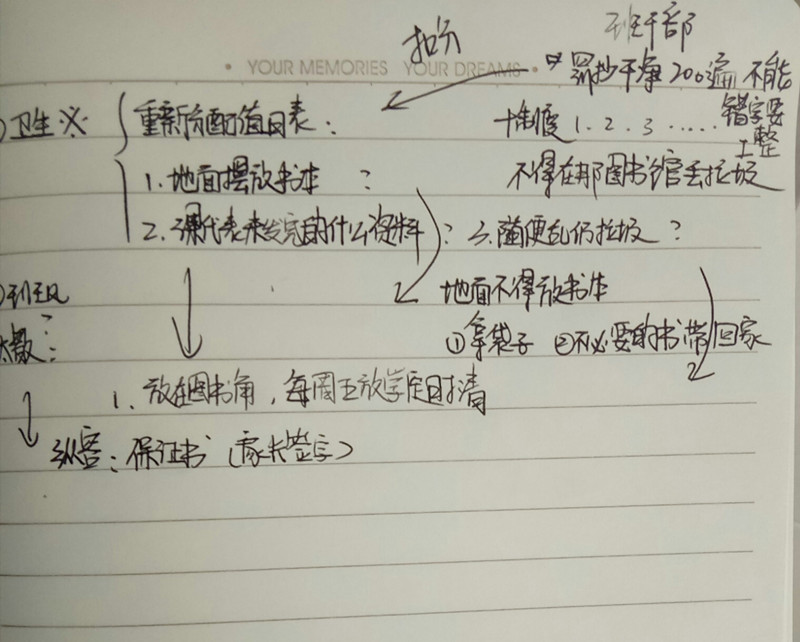 班干部
扣分
YOUR MEMORIES YOUR DREAMS
罚抄干净200遍 不能
错字要
工整
卫生※ 重新分配值日表:
制度1.2.3……
1.地面摆放书本?
不得在那图书馆丢垃圾
2.课代表未发完的什么资料? 3.随便乱仍垃圾?
班风
太散:
地面不得放书本
①拿袋子 ②不必要的书带回家
1.放在图书角,每周五放学定时清
纵容:保证书(家长签字)